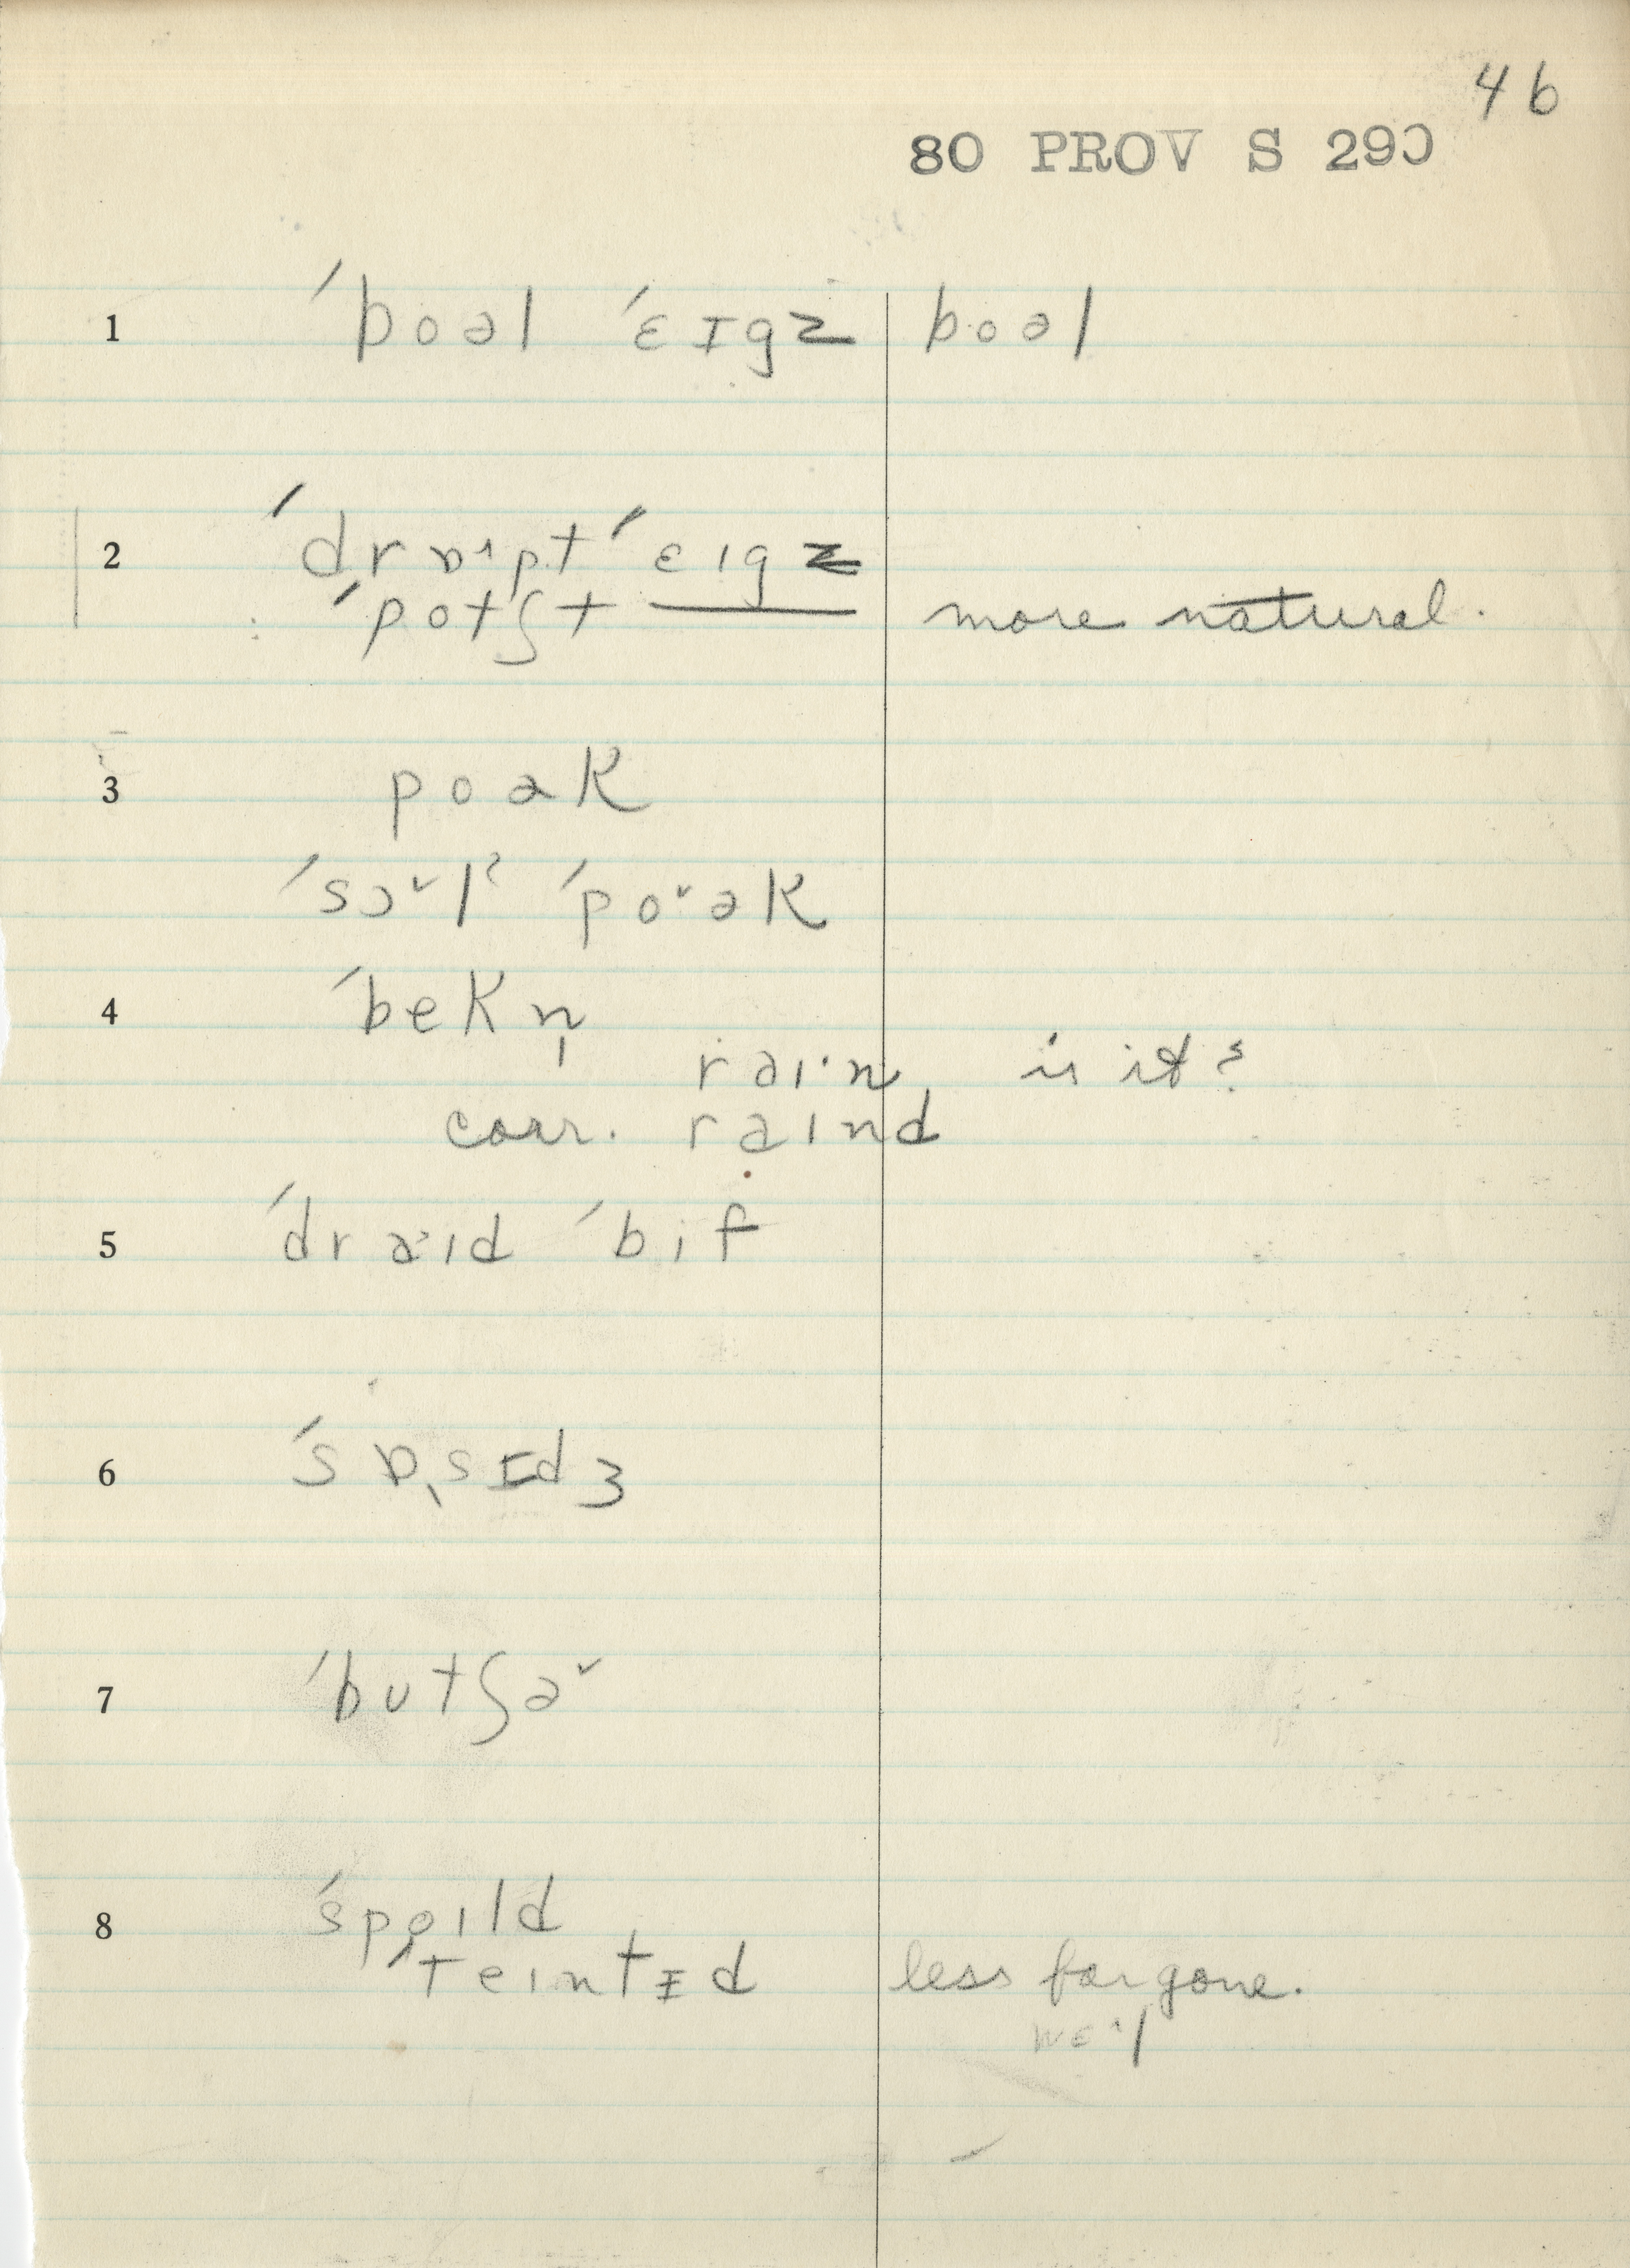 46
80 PROV S 290
1 ˈboəl ˈɛɪgz boəl
2 ˈdrɒ˄pt ˈɛɪgz
ˈpotʃt ___ more natural.
3 poək
ˈsɔ˅lˀ ˈpo˅ək
4 ˈbekn̩
raɪ·n, is it?
corr. raɪnd
5 ˈdraˑɪd ˈbif
6 ˈsɒ˛sɪdʒ
7 ˈbutʃə˅
8 ˈspoɪld
ˈteɪntɪd less far gone.